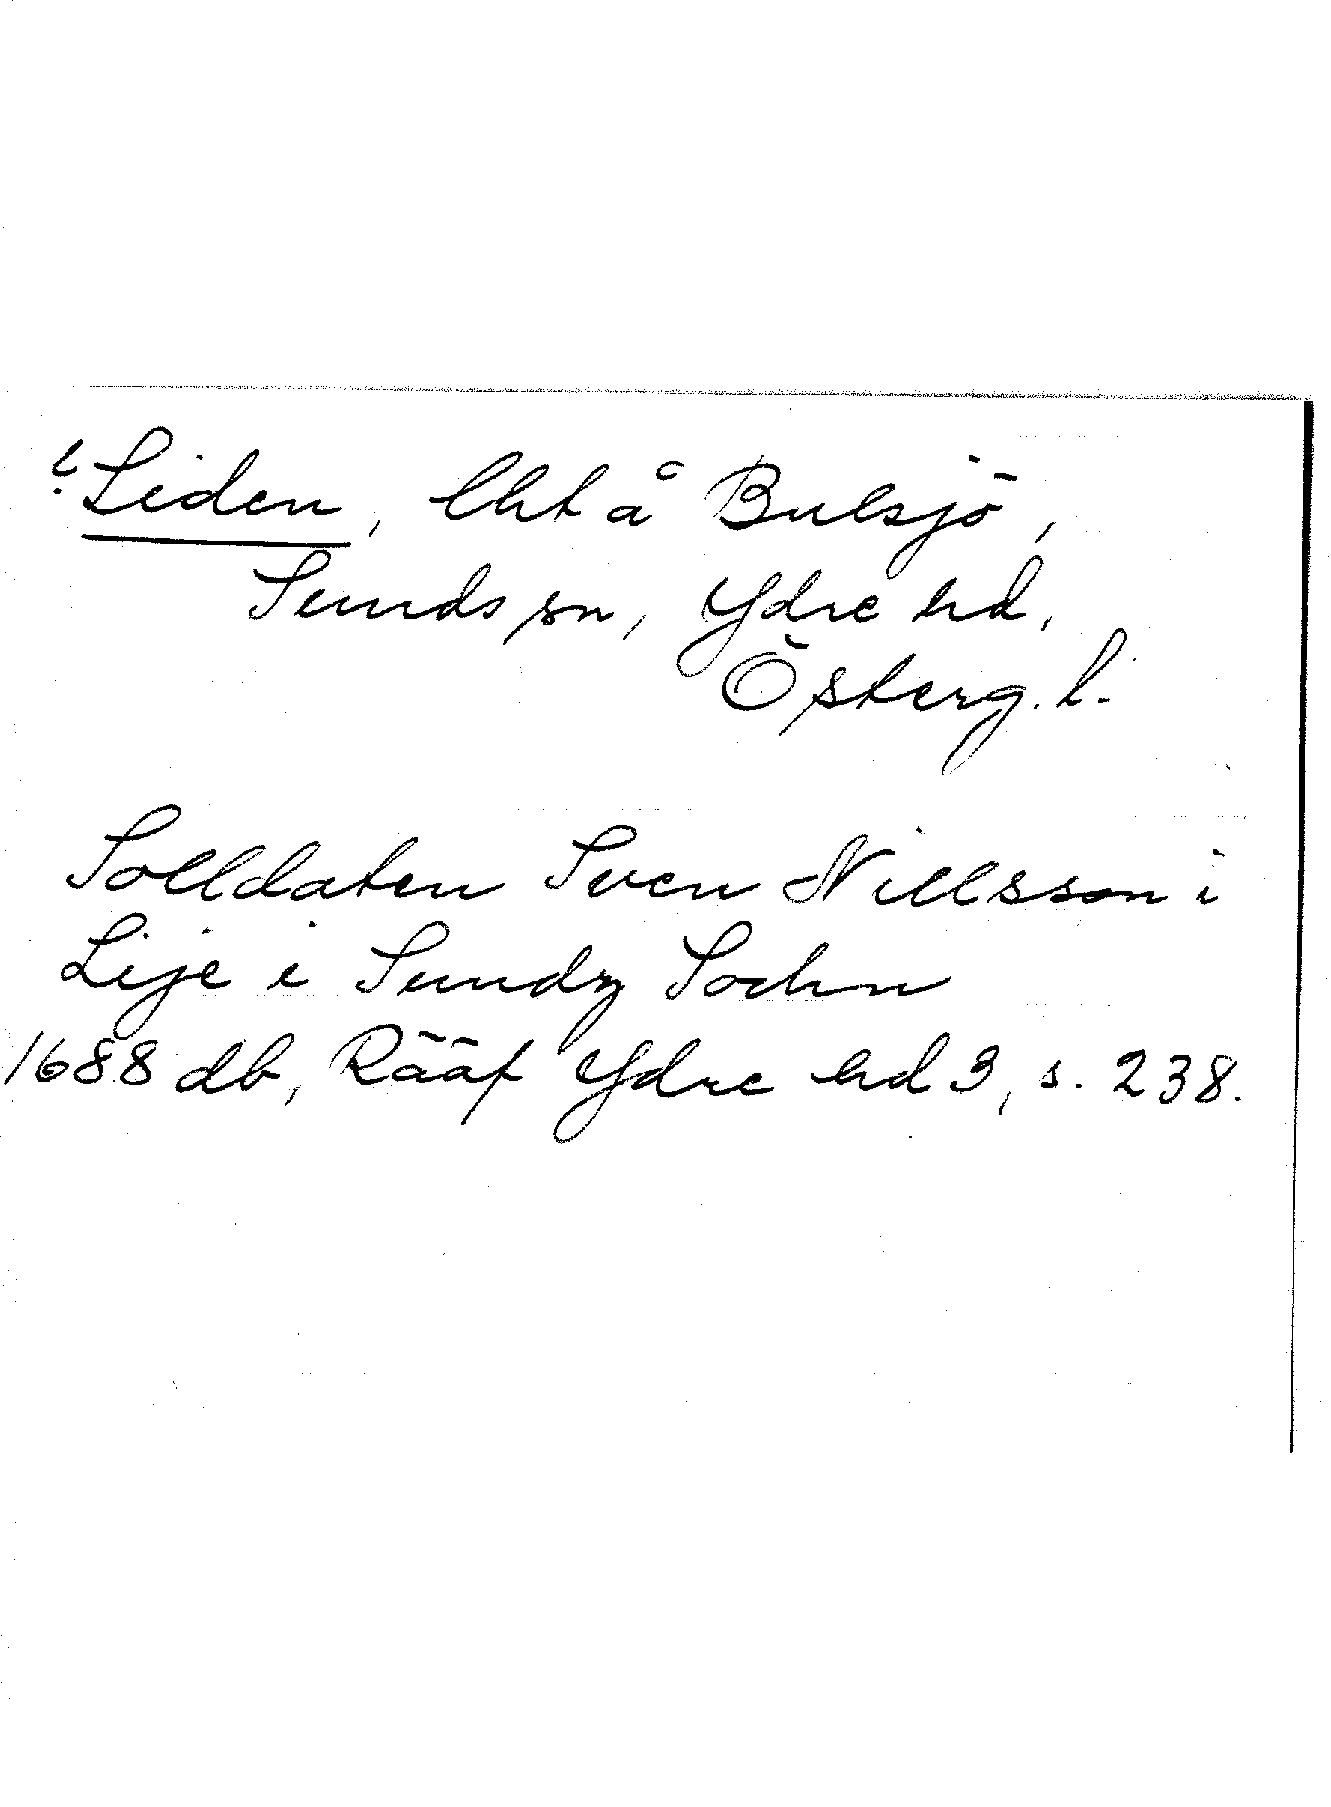 ? Liden, lht å Bulsjö,
Sunds sn, Ydre hd,
Österg. l.
Solldaten Sven Nillsson i
Lije i Sundz Sochn
1688 db, Rääf Ydre hd 3, s. 238.